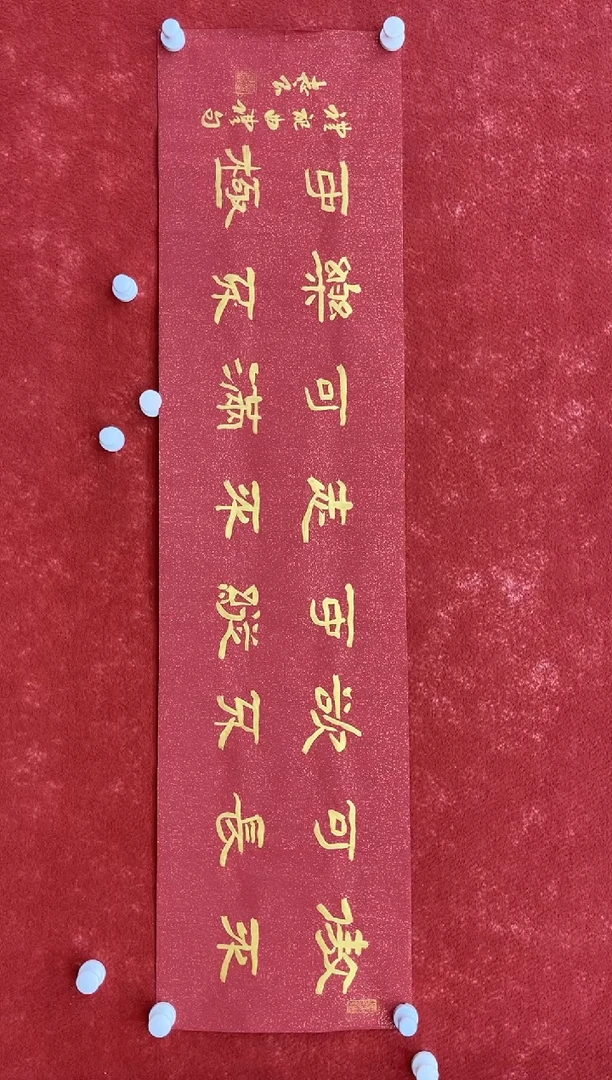 傲不
可長
欲不
可縱
志不
可滿
樂不
可極
禮記曲禮句